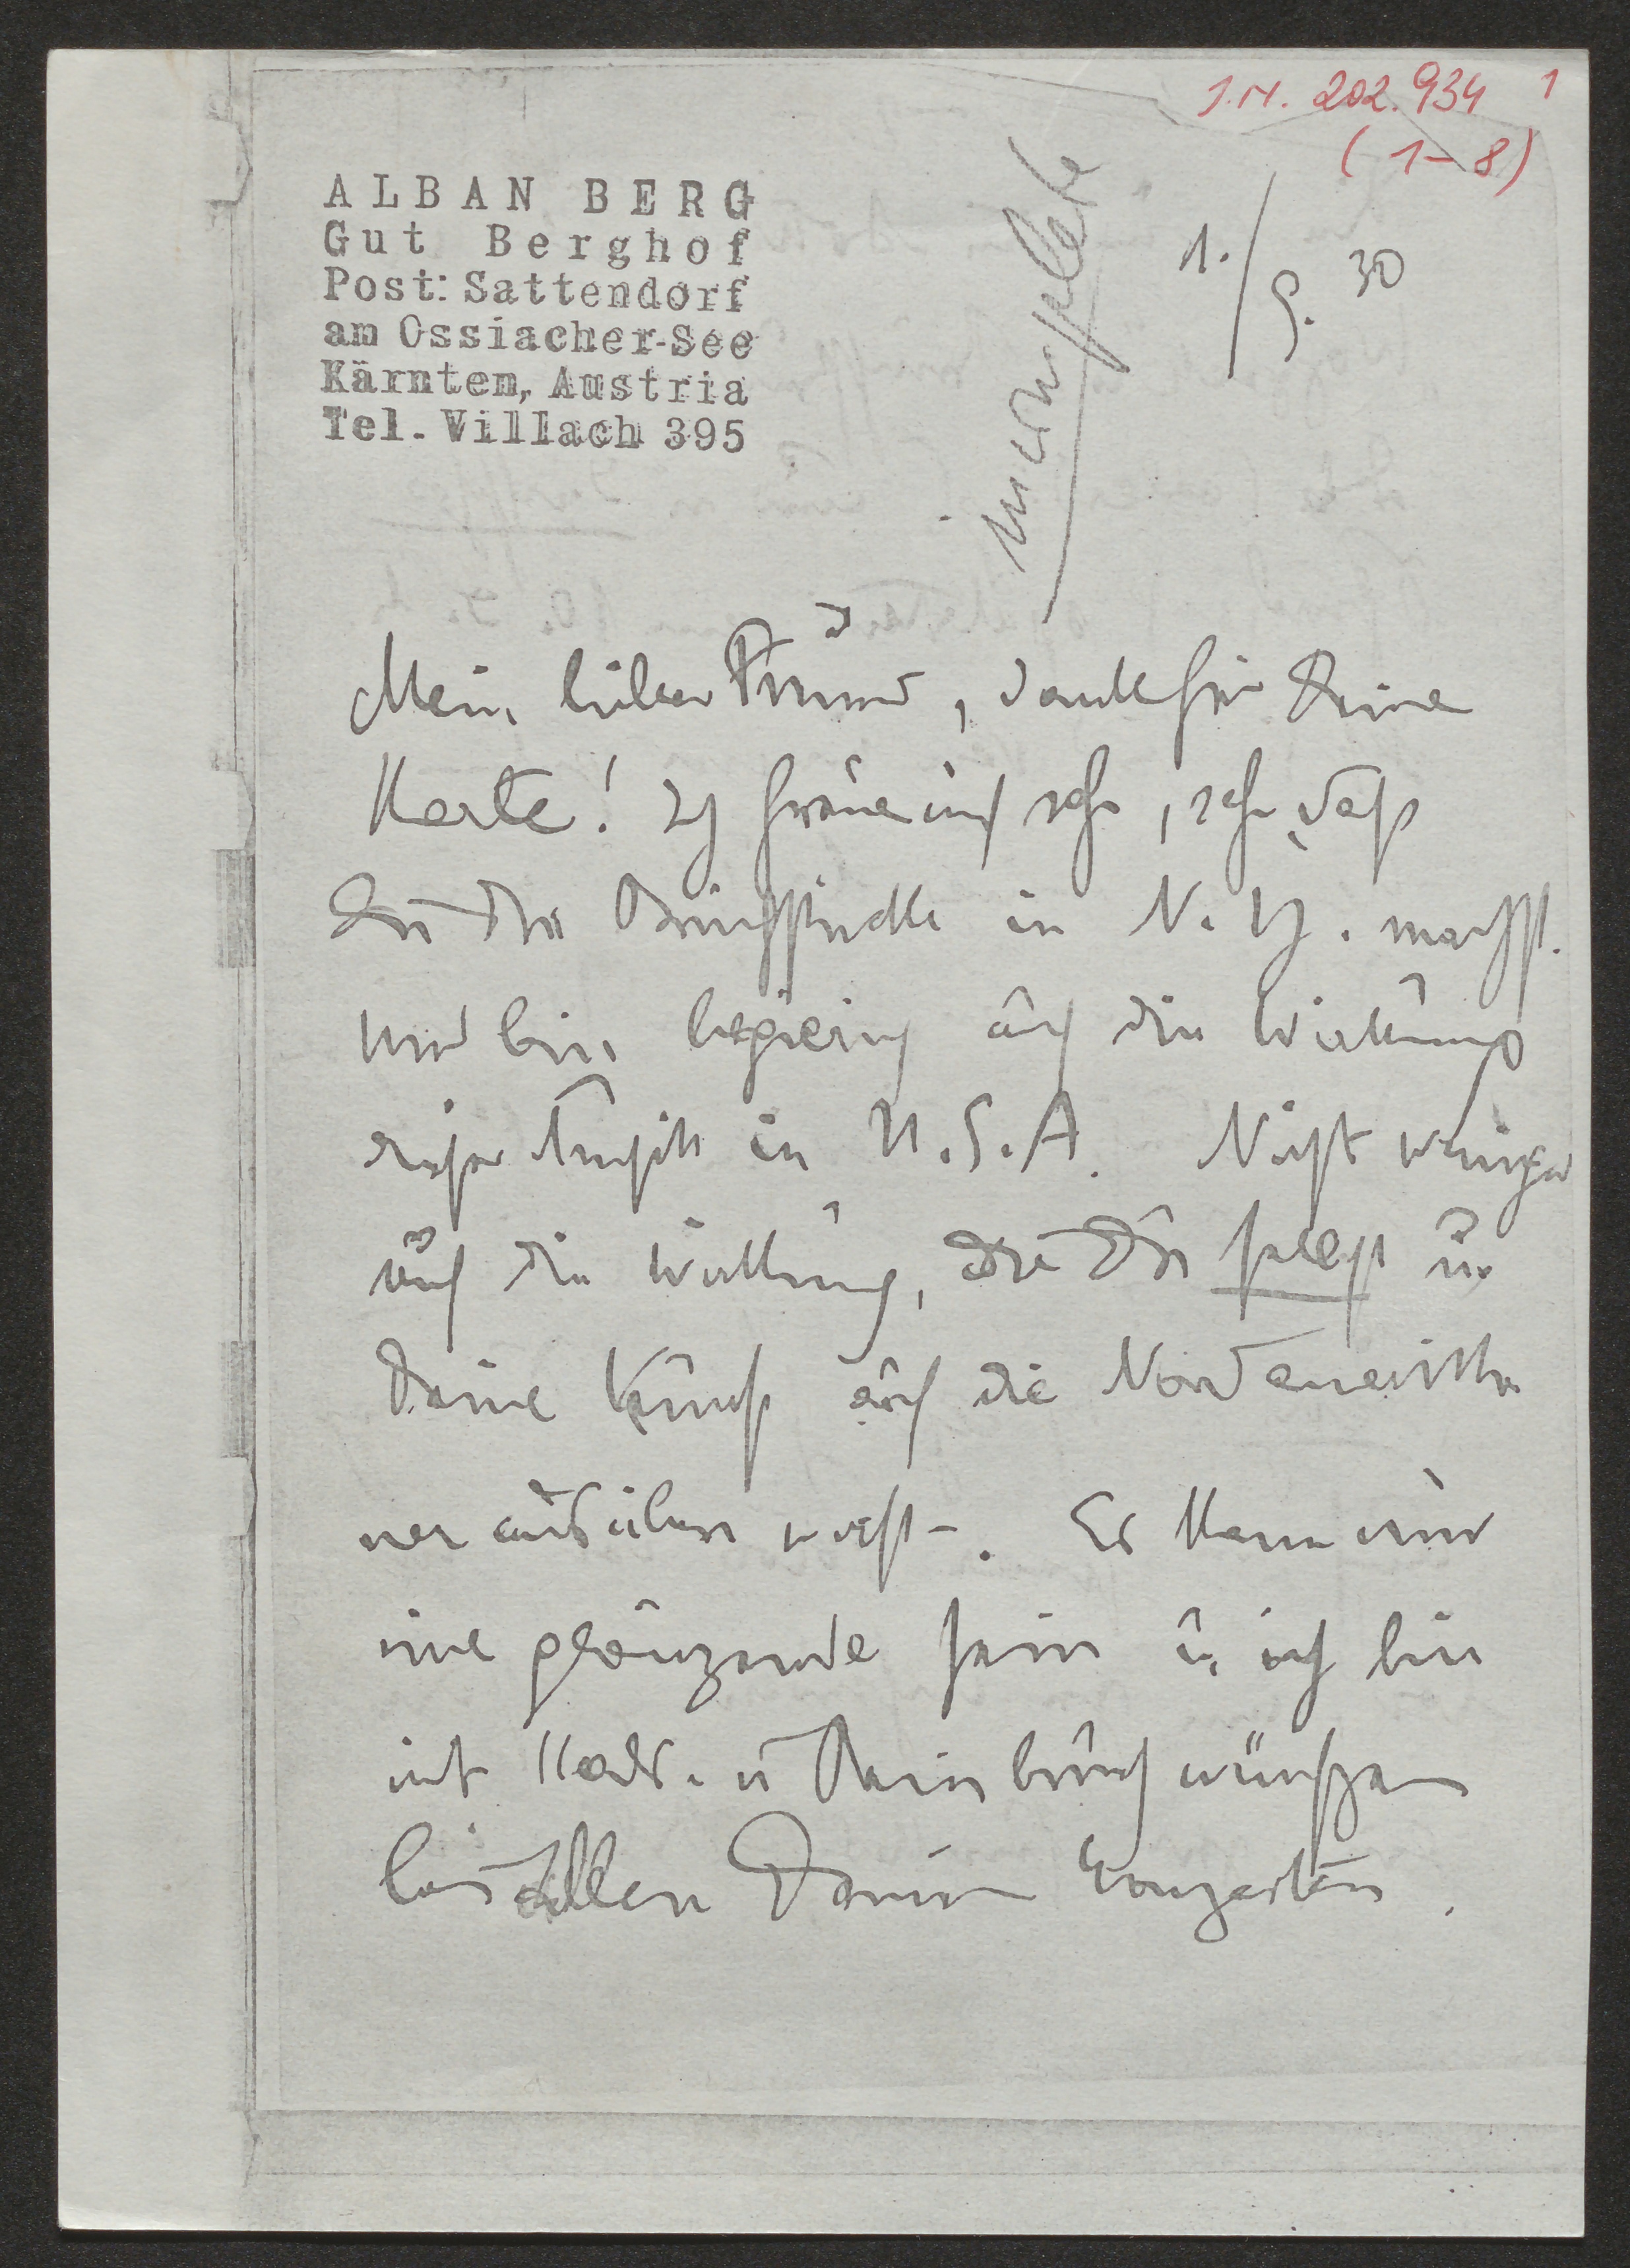 I.N. 202.934 1
(1-8)
ALBAN BERG
Gut Berghof
Post: Sattendorf
am Ossiacher-See
Kärnten, Austria
Tel. Villach 395
1./9. 30
Mein lieber Freund, Dank für Deine
Karte! Ich freue mich sehr, sehr daß
Du die Bruchstücke in N. Y. machst.
und bin begierig auf die Wirkung
dieser Musik in U.S.A. Nicht weniger
auf die Wirkung, die Du selbst u.
Deine Kunst auf die Nordamerika
ner ausüben wirst –. Es kann nur
eine glänzende sein u. ich bin
mit u.
bei allen Deinen Konzerten.